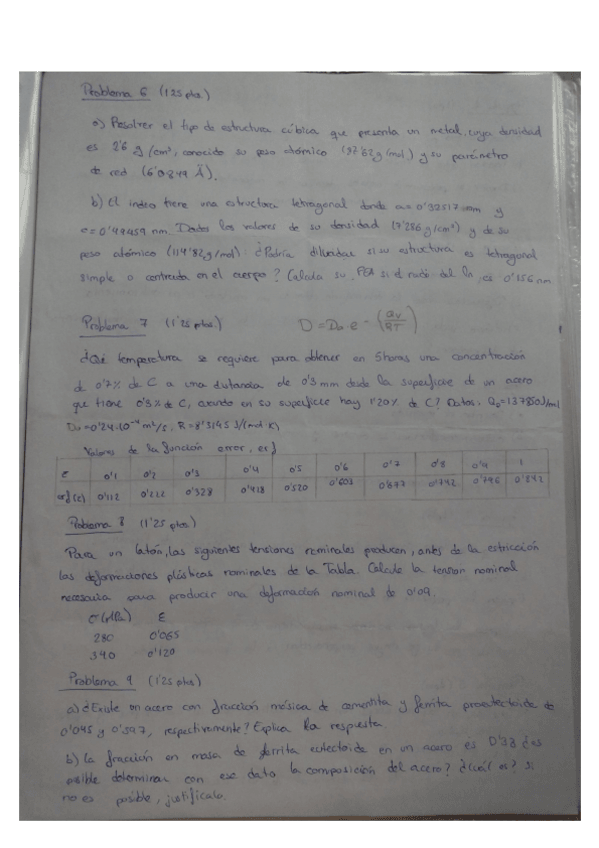 Problema 6 (1'25 ptos.)
a) Resolver el tipo de estructura cúbica que presenta un metal, cuya densidad
es 2'6 g/cm³, conocido su peso atómico (87'62 g/mol) y su parámetro
de red (6'0849 Å).
b) El indeo tiene una estructura tetragonal donde a = 0'32517 nm y
c = 0'49459 nm. Dados los valores de su densidad (7'286 g/cm³) y de su
peso atómico (114'82 g/mol) ¿Podría dilucidar si su estructura es tetragonal
simple o centrada en el cuerpo? Calcula su FEA si el radio del In, es 0'156 nm
Problema 7 (1'25 ptos.) D = D₀ e -(Qv/RT)
¿Qué temperatura se requiere para obtener en 5 horas una concentración
de 0'7% de C a una distancia de 0'3 mm desde la superficie de un acero
que tiene 0'3% de C, cuando en su superficie hay 1'20% de C? Datos: Q₀=137850 J/mol
D₀=0'24·10⁻⁴ m²/s, R=8'3145 J/(mol·K)
Valores de la función error, erf
ε 0'1 0'2 0'3 0'4 0'5 0'6 0'7 0'8 0'9 1
erf(ε) 0'112 0'222 0'328 0'428 0'520 0'603 0'677 0'742 0'796 0'842
Problema 8 (1'25 ptos)
Para un latón, las siguientes tensiones nominales producen, antes de la estricción
las deformaciones plásticas nominales de la Tabla. Calcule la tension nominal
necesaria para producir una deformacion nominal de 0'09.
σ(MPa) ε
280 0'065
340 0'120
Problema 9 (1'25 ptos)
a) ¿Existe un acero con fracción másica de cementita y ferrita proeutectoide de
0'045 y 0'597, respectivamente? Explica la respuesta.
b) La fracción en masa de ferrita eutectoide en un acero es 0'38 ¿es
posible determinar con ese dato la composición del acero? ¿Cuál es? Si
no es posible, justifícalo.